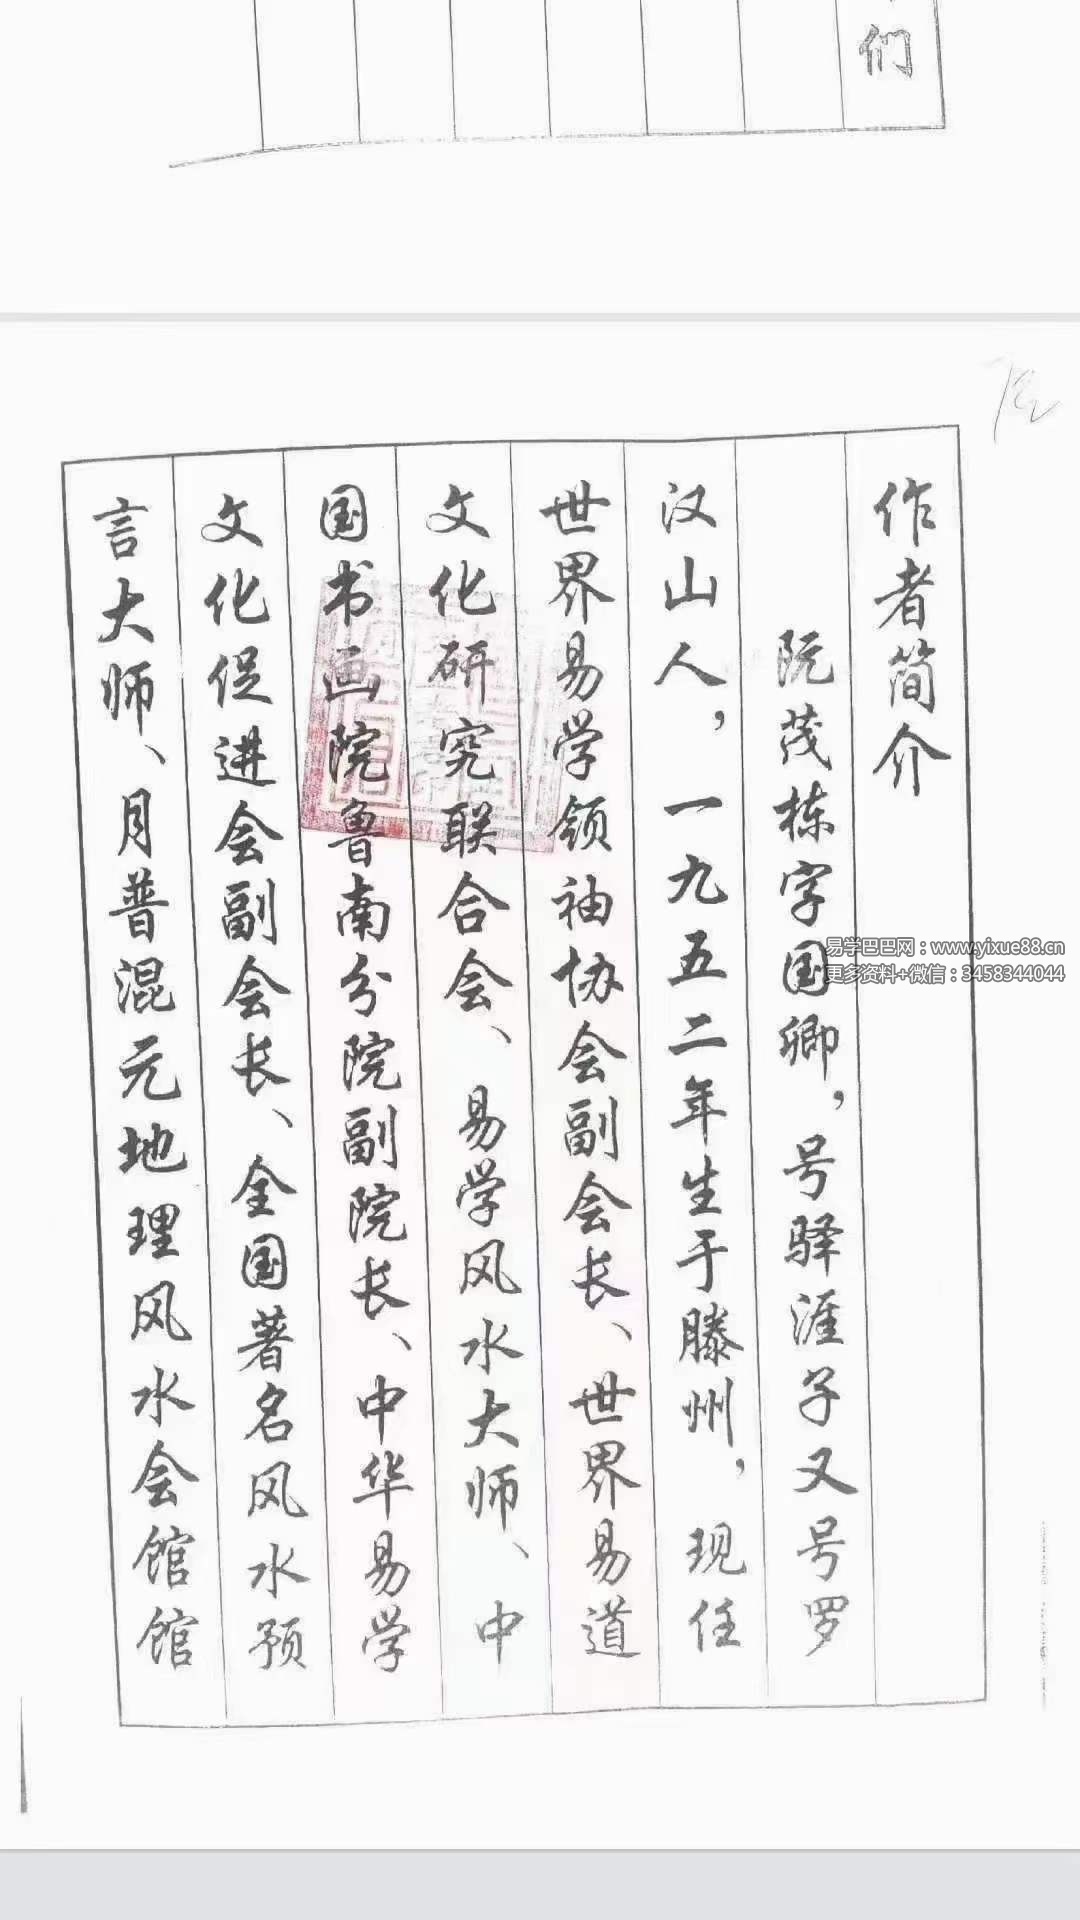 们
作者简介
阮茂栋字国卿，号驿涯子又号罗
汉山人，一九五二年生于滕州，现任
世界易学领袖协会副会长、世界易道
文化研究联合会、易学风水大师、中
国书画院鲁南分院副院长、中华易学
文化促进会副会长、全国著名风水预
言大师、月普混元地理风水会馆馆
易学巴巴网：www.yixue88.cn
更多资料+微信：3458344044